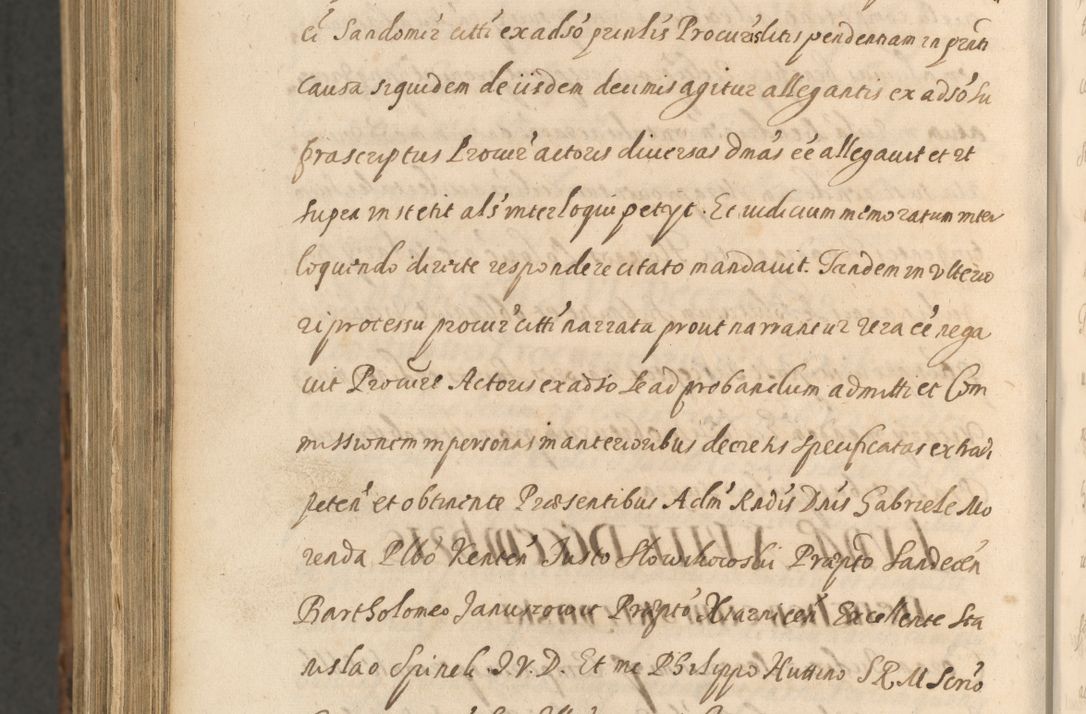 ci Sandomir citti ex adső prińlis Procuris litis pendentiam in pńti
causa siquidem de iisdem decimis agitur allegantis ex adső su
prascriptus Procur actoris diuersas dnás eé allegauit et ut
supra institit als interloqui petyt. Et iudicium memoratum inter
loquendo directe respondere citato mandauit. Tandem in vlterio
ri processu procur citti narrata prout narrantur vera cé nega
uit Procure Actoris ex adső se ad probandum admitti et Com
missionem in personas in anterioribus decretis specificatas extradi
peteń et obtinente Præsentibus Adm Rndis Dnis Gabriele Mo
renda Plbő Kenteń Justo Slowikowski Præptő Sandecéń
Bartholomeo Januszowic Præptő Xiaznicéń Excellente Sta
nislao Spinek I. V. D. Et me Philippo Huttino S R M Scrio